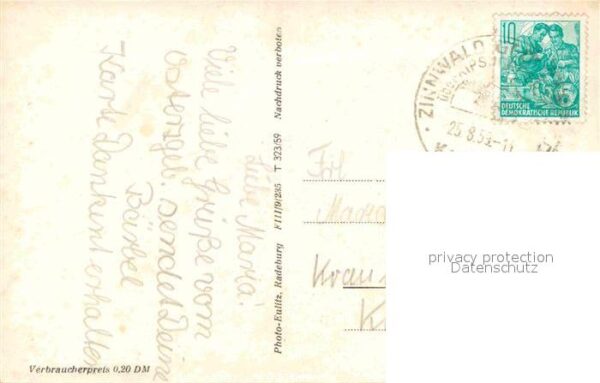 Liebe Maria!
Viele liebe Grüße vom
Osterzgeb. sendet Deine
Bärbel
Karte Dankend erhalten
Verbraucherpreis 0,20 DM
Photo-Eulitz, Radeburg F III/9/285 T 323/59 Nachdruck verboten
10
DEUTSCHE
DEMOKRATISCHE REPUBLIK
ZINNWALD
Frl
privacy protection
Datenschutz